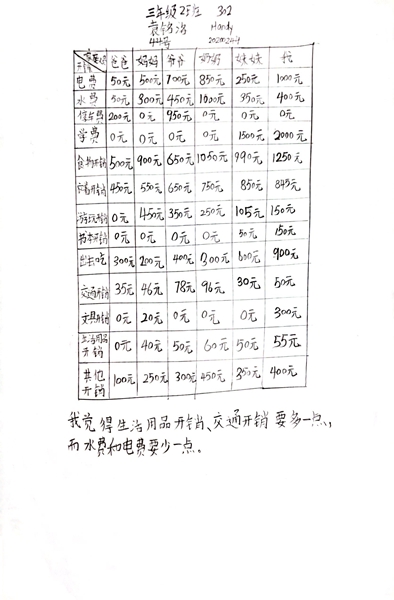 三年级2班 302
Handy
44号
爸爸 妈妈 爷爷 奶奶 妹妹
电费 50元 500元 700元 850元 250元 1000元
水费 50元 300元 450元 1000元 350元 400元
停车费 200元 0元 950元 0元 0元 0元
学费 0元 0元 0元 0元 1500元 2000元
食物开销 500元 900元 650元 1050元 990元 1250元
开销 450元 550元 650元 750元 850元 845元
开销 0元 450元 350元 250元 105元 150元
书本开销 0元 0元 0元 0元 50元 150元
出去吃 300元 200元 400元 300元 600元 900元
交通开销 35元 46元 78元 96元 30元 50元
文具开销 0元 20元 0元 0元 0元 300元
生活用品开销 0元 40元 50元 60元 50元 55元
其他开销 100元 250元 300元 450元 350元 400元
我觉得生活用品开销、交通开销要多一点，
而水费和电费要少一点。